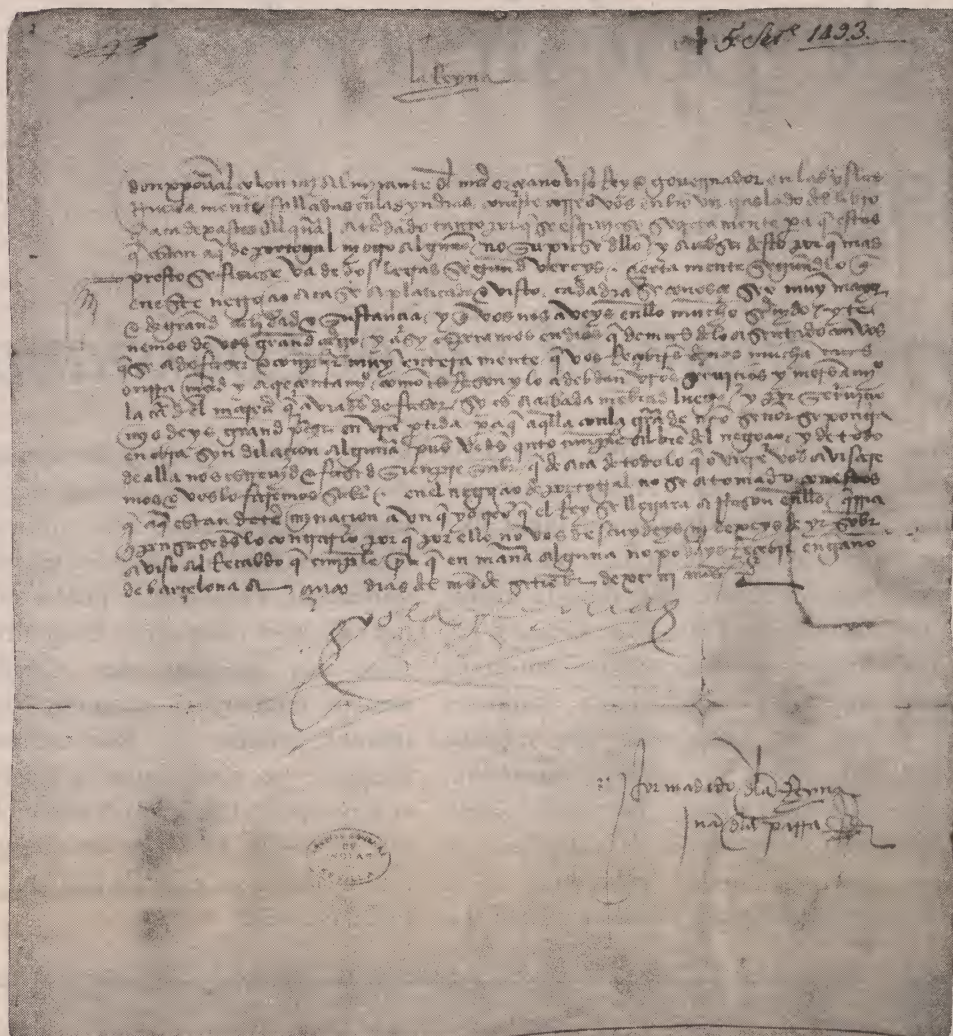 5 Set.e 1493.
la Reyna
don xpoval colon mi almirante del mar oceano viso Rey e governador en las yslas
nuevamente falladas en las yndias con este correo vos enbio un traslado del libro
q aca dexastes el qual a tardado tanto por q se escriviese secretamente pa q estos
q estan aqi de portogal ni otro alguno no supiese dello y a cabsa desto por q mas
presto se fisiese va de dos letras segund vereys. cierta mente segund lo q
en este negocio aca se a platicado e visto cada dia se conosce ser muy mayor
e de grand calidad e sustancia y q vos nos aveys en ello mucho servido y te
nemos de vos grand cargo y asy esperamos en dios q demas de lo asentado con vos
q se a de faser e conplir muy entera mente q vos Recibireys de nos mucha mas
onrra mrd y acrecentamyo como es Rason y lo adebdan vros servicios y merescimyos
la carta del marear q aviades de faser sy es acabada me enbiad luego y por servicio
mio deys grand priesa en vra partida pa q aqlla con la gra de nro señor se ponga
en obra syn dilacion alguna pues vedes qnto cumple al bie del negocio y de todo
de alla nos escrevid e fased siempre saber q de aca de todo lo q oviere vos avisare
mos e vos lo faremos saber. en el negocio de portogal no se a tomado con estos
q aqi estan determinacion aun q yo creo q el Rey se llegara a Rason en ello qrria
q pensasedes lo contrario por q por ello no vos descuydeys ni dexeys de yr sobre
aviso al Recabdo q cumple pa q en manera alguna no podays recebir engaño
de barcelona a cinco dias de setienbre de xciii años
yo la Reyna
por mandado de la Reyna
Juan de la parra
ARCHIVO GENERAL DE INDIAS SEVILLA